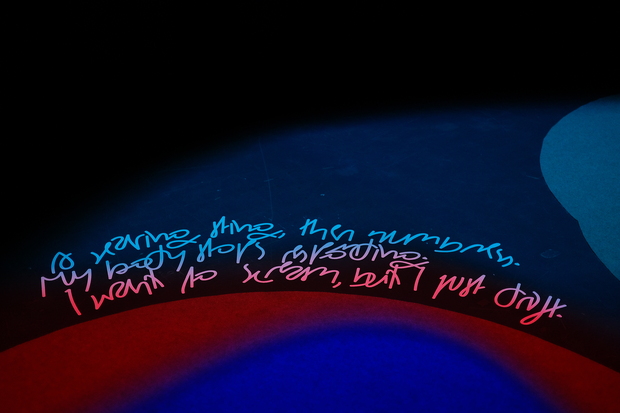 a searing sting, then numbness.
My body stops responding.
I want to scream, but I just drift.